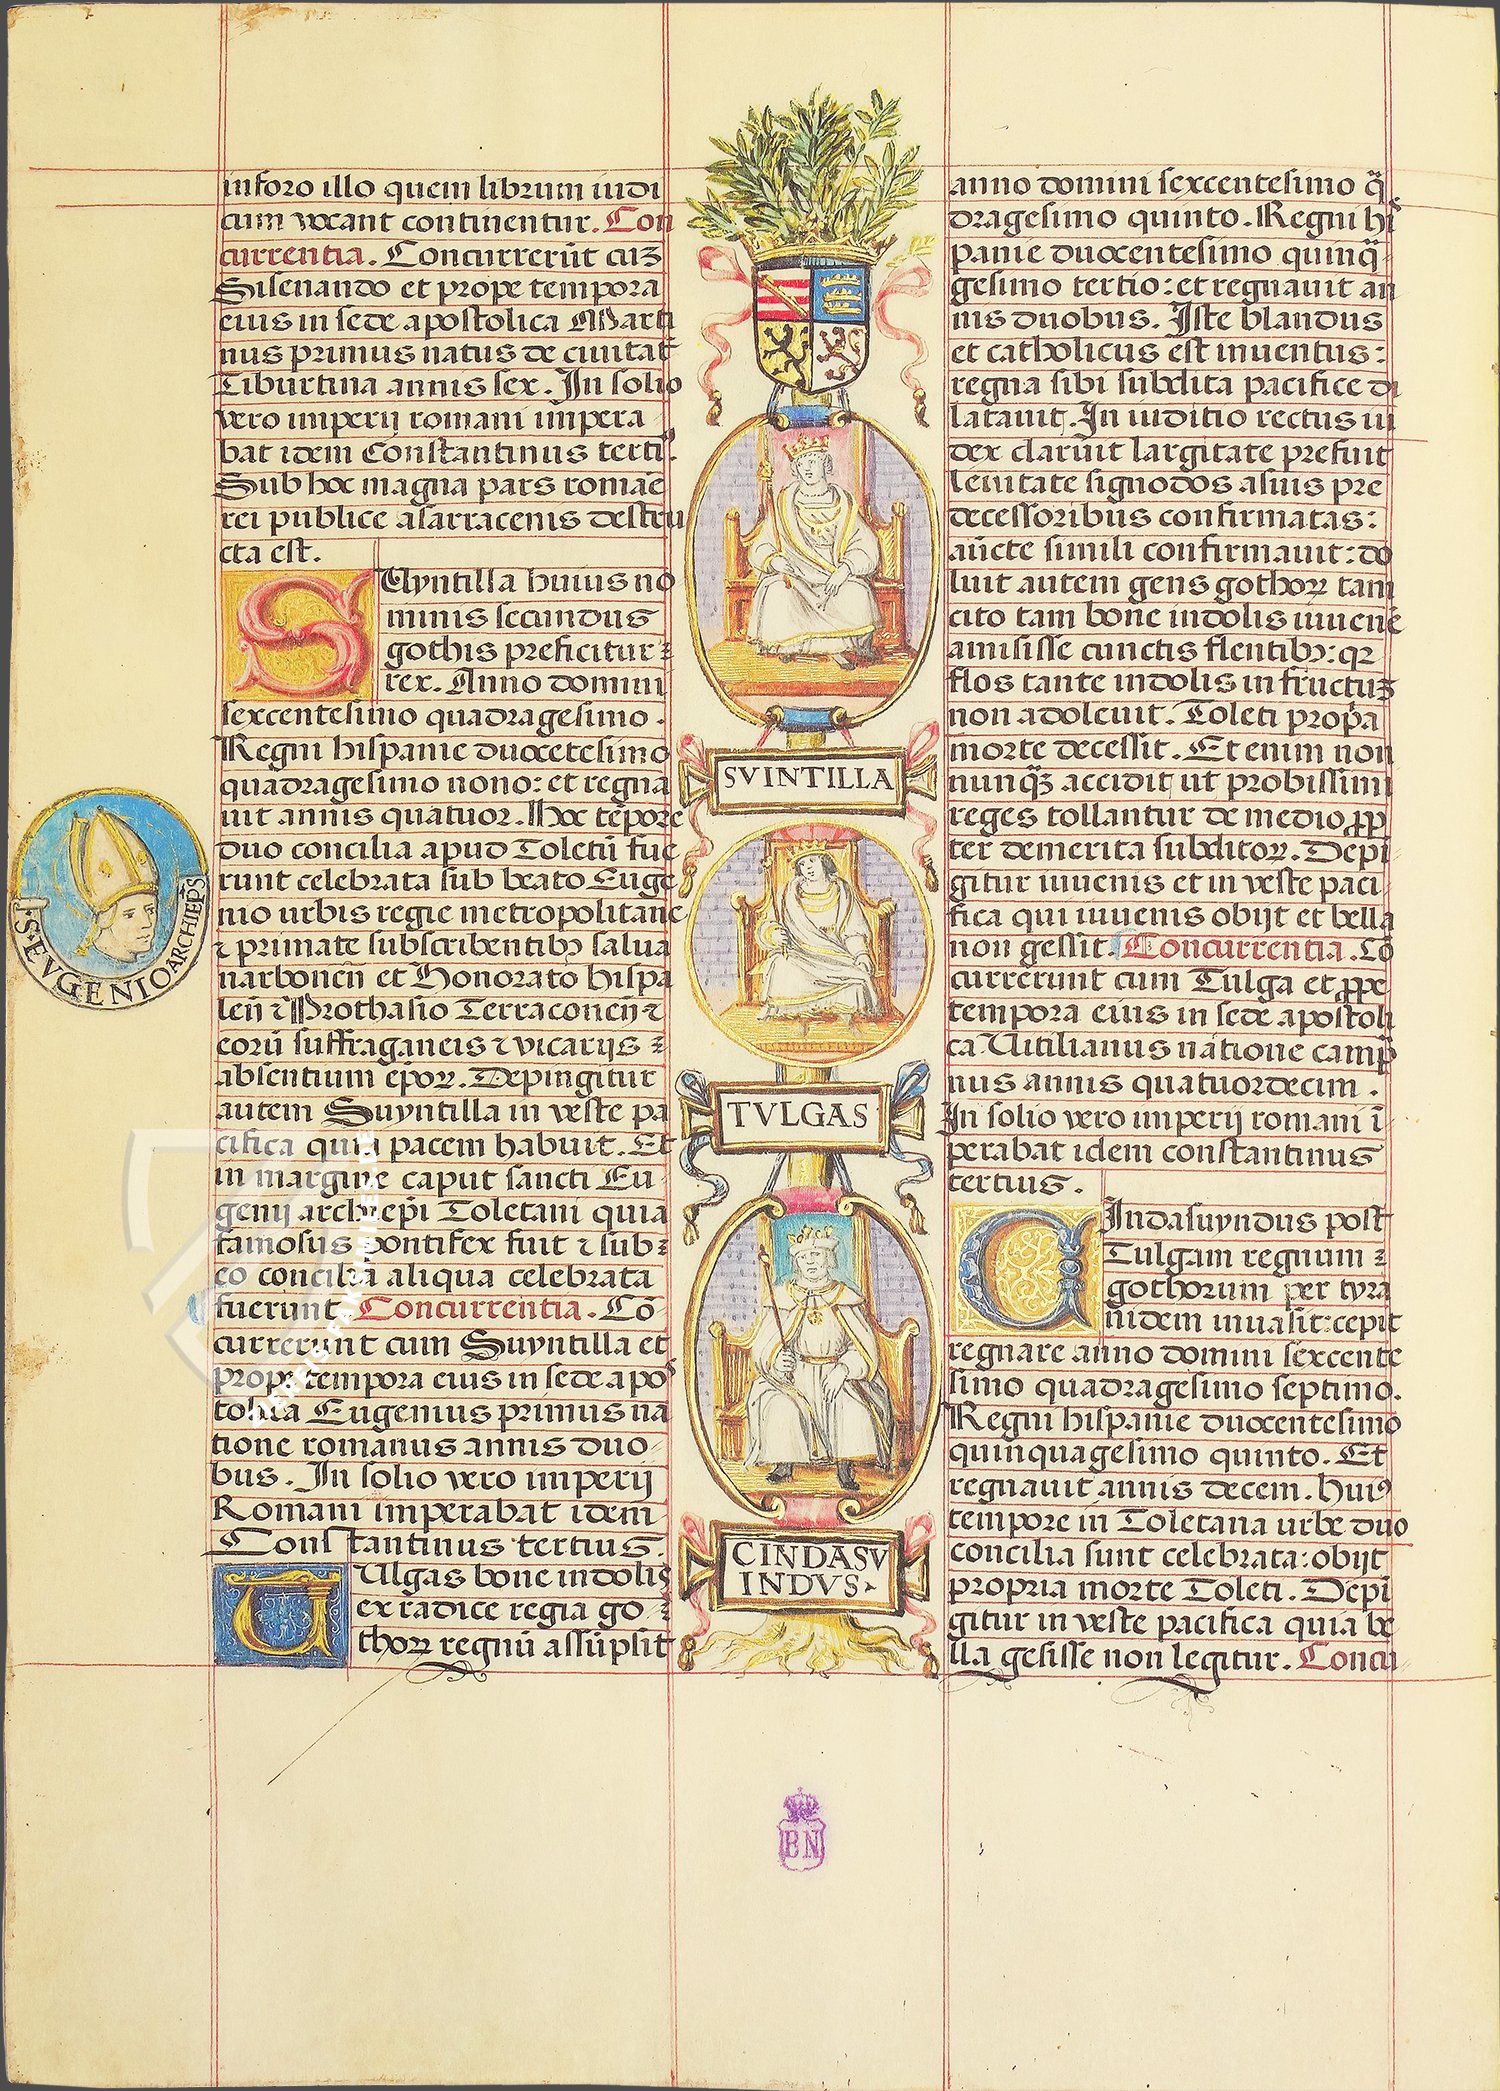 in foro illo quem librum iudi
cum vocant continentur. Con
currentia. Concurrerūt cuʒ
Sisenando et prope tempora
eius in sede apostolica Marti
nus primus natus de civitat̄
Tiburtina annis sex. In solio
vero imperij romani impera
bat idem Constantinus terti⁹.
Sub hoc magna pars romāe
rei publice a sarracenis destru
cta est.
SUyntilla huius no
minis secundus
gothis preficitur
rex. Anno domini
sexcentesimo quadragesimo.
Regni hispanie ducētesimo
quadragesimo nono: et regna
uit annis quatuor. Hoc tēpore
duo concilia apud Toletū fue
runt celebrata sub beato Euge
nio urbis regie metropolitane
⁊ primate subscribentibꝯ salua
narboneñ et Honorato hispa
leñ ⁊ Prothasio Terraconeñ ⁊
eorū suffraganeis ⁊ vicarijs
absentium epoꝝ. Depingitur
autem Suyntilla in veste pa
cifica quia pacem habuit. Et
in margine caput sancti Eu
genij archiepi Toletani quia
famosus pontifex fuit ⁊ sub
eo concilia aliqua celebrata
fuerunt. Concurrentia. Cō
currerunt cum Suyntilla et
prope tempora eius in sede apo
tolica Eugenius primus na
tione romanus annis duo
bus. In solio vero imperij
Romani imperabat idem
Constantinus tertius.
Ulgas bone indolis
ex radice regia go
thoꝝ regnū assūpsit
S. EVGENIO ARCHIEPS
SVINTILLA
TVLGAS
CINDASV
INDVS
BN
anno domini sexcentesimo q̄
dragesimo quinto. Regni hi
panie ducentesimo quinq̄
gesimo tertio: et regnauit an
nis duobus. Iste blandus
et catholicus est inuentus:
regna sibi subdita pacifice di
latauit. In iuditio rectus iu
dex claruit largitate prefuit
leuitate signodos a suis pre
decessoribus confirmatas:
aūcte simili confirmauit: do
luit autem gens gothoꝝ tam
cito tam bone indolis iuuene
amisisse cunctis flentibꝯ: qꝛ
flos tante indolis in fructuʒ
non adoleuit. Toleti propa
morte decessit. Et enim non
nunq̄ʒ accidit ut probissimi
reges tollantur de medio ꝓp
ter demerita subditoꝝ. Depi
gitur iuuenis et in veste paci
fica qui iuuenis obijt et bella
non gessit. Concurrentia. Cō
currerunt cum Tulga et ꝓpe
tempora eius in sede apostoli
ca Uitilianus natione camp
nus annis quatuordecim.
In solio vero imperij romani ī
perabat idem constantinus
tertius.
CIndasuyndus post
Tulgam regnum
gothorum per tyra
nidem inuasit: cepit
regnare anno domini sexcente
simo quadragesimo septimo.
Regni hispanie ducentesimo
quinquagesimo quinto. Et
regnauit annis decem. hui⁹
tempore in Toletana urbe duo
concilia sunt celebrata: obijt
propria morte Toleti. Depi
gitur in veste pacifica quia be
lla gesisse non legitur. Concu